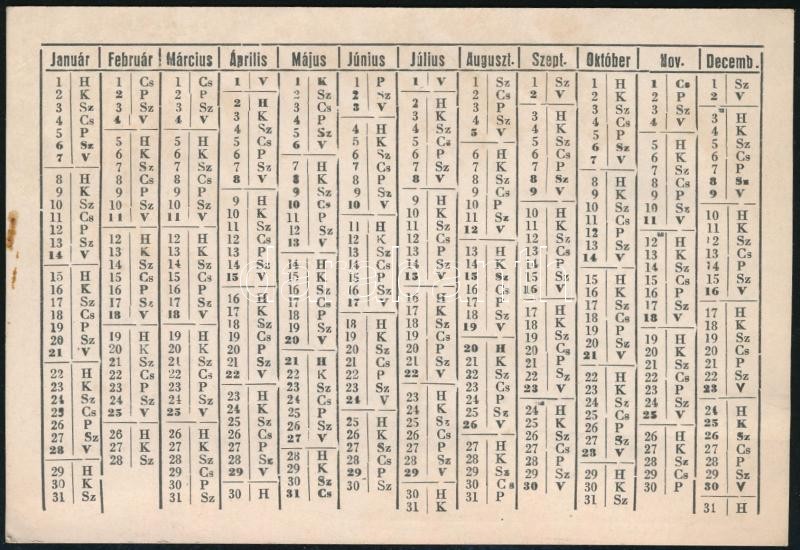 Január Február Március Április Május Június Július Auguszt. Szept. Október Nov. Decemb.
1 H 1 Cs 1 Cs 1 V 1 K 1 P 1 V 1 Sz 1 Sz 1 H 1 Cs 1 Sz
2 K 2 P 2 P 2 H 2 Sz 2 Sz 2 H 2 Cs 2 V 2 K 2 P 2 V
3 Sz 3 Sz 3 Sz 3 K 3 Cs 3 V 3 K 3 P 3 H 3 Sz 3 Sz 3 H
4 Cs 4 V 4 V 4 Sz 4 P 4 H 4 Sz 4 Sz 4 K 4 Cs 4 V 4 K
5 P 5 H 5 H 5 Cs 5 Sz 5 K 5 Cs 5 V 5 Sz 5 P 5 H 5 Sz
6 Sz 6 K 6 K 6 P 6 V 6 Sz 6 P 6 H 6 Cs 6 Sz 6 K 6 Cs
7 V 7 Sz 7 Sz 7 Sz 7 H 7 Cs 7 Sz 7 K 7 P 7 V 7 Sz 7 P
8 H 8 Cs 8 Cs 8 V 8 K 8 P 8 V 8 Sz 8 Sz 8 H 8 Cs 8 Sz
9 K 9 P 9 P 9 H 9 Sz 9 Sz 9 H 9 Cs 9 V 9 K 9 P 9 V
10 Sz 10 Sz 10 Sz 10 K 10 Cs 10 V 10 K 10 P 10 H 10 Sz 10 Sz 10 H
11 Cs 11 V 11 V 11 Sz 11 P 11 H 11 Sz 11 Sz 11 K 11 Cs 11 V 11 K
12 P 12 H 12 H 12 Cs 12 Sz 12 K 12 Cs 12 V 12 Sz 12 P 12 H 12 Sz
13 Sz 13 K 13 K 13 P 13 V 13 Sz 13 P 13 H 13 Cs 13 Sz 13 K 13 Cs
14 V 14 Sz 14 Sz 14 Sz 14 H 14 Cs 14 Sz 14 K 14 P 14 V 14 Sz 14 P
15 H 15 Cs 15 Cs 15 V 15 K 15 P 15 V 15 Sz 15 Sz 15 H 15 Cs 15 Sz
16 K 16 P 16 P 16 H 16 Sz 16 Sz 16 H 16 Cs 16 V 16 K 16 P 16 V
17 Sz 17 Sz 17 Sz 17 K 17 Cs 17 V 17 K 17 P 17 H 17 Sz 17 Sz 17 H
18 Cs 18 V 18 V 18 Sz 18 P 18 H 18 Sz 18 Sz 18 K 18 Cs 18 V 18 K
19 P 19 H 19 H 19 Cs 19 Sz 19 K 19 Cs 19 V 19 Sz 19 P 19 H 19 Sz
20 Sz 20 K 20 K 20 P 20 V 20 Sz 20 P 20 H 20 Cs 20 Sz 20 K 20 Cs
21 V 21 Sz 21 Sz 21 Sz 21 H 21 Cs 21 Sz 21 K 21 P 21 V 21 Sz 21 P
22 H 22 Cs 22 Cs 22 V 22 K 22 P 22 V 22 Sz 22 Sz 22 H 22 Cs 22 Sz
23 K 23 P 23 P 23 H 23 Sz 23 Sz 23 H 23 Cs 23 V 23 K 23 P 23 V
24 Sz 24 Sz 24 Sz 24 K 24 Cs 24 V 24 K 24 P 24 H 24 Sz 24 Sz 24 H
25 Cs 25 V 25 V 25 Sz 25 P 25 H 25 Sz 25 Sz 25 K 25 Cs 25 V 25 K
26 P 26 H 26 H 26 Cs 26 Sz 26 K 26 Cs 26 V 26 Sz 26 P 26 H 26 Sz
27 Sz 27 K 27 K 27 P 27 V 27 Sz 27 P 27 H 27 Cs 27 Sz 27 K 27 Cs
28 V 28 Sz 28 Sz 28 Sz 28 H 28 Cs 28 Sz 28 K 28 P 28 V 28 Sz 28 P
29 H 29 Cs 29 V 29 K 29 P 29 V 29 Sz 29 Sz 29 H 29 Cs 29 Sz
30 K 30 P 30 H 30 Sz 30 Sz 30 H 30 Cs 30 V 30 K 30 P 30 V
31 Sz 31 Sz 31 Cs 31 K 31 P 31 Sz 31 H